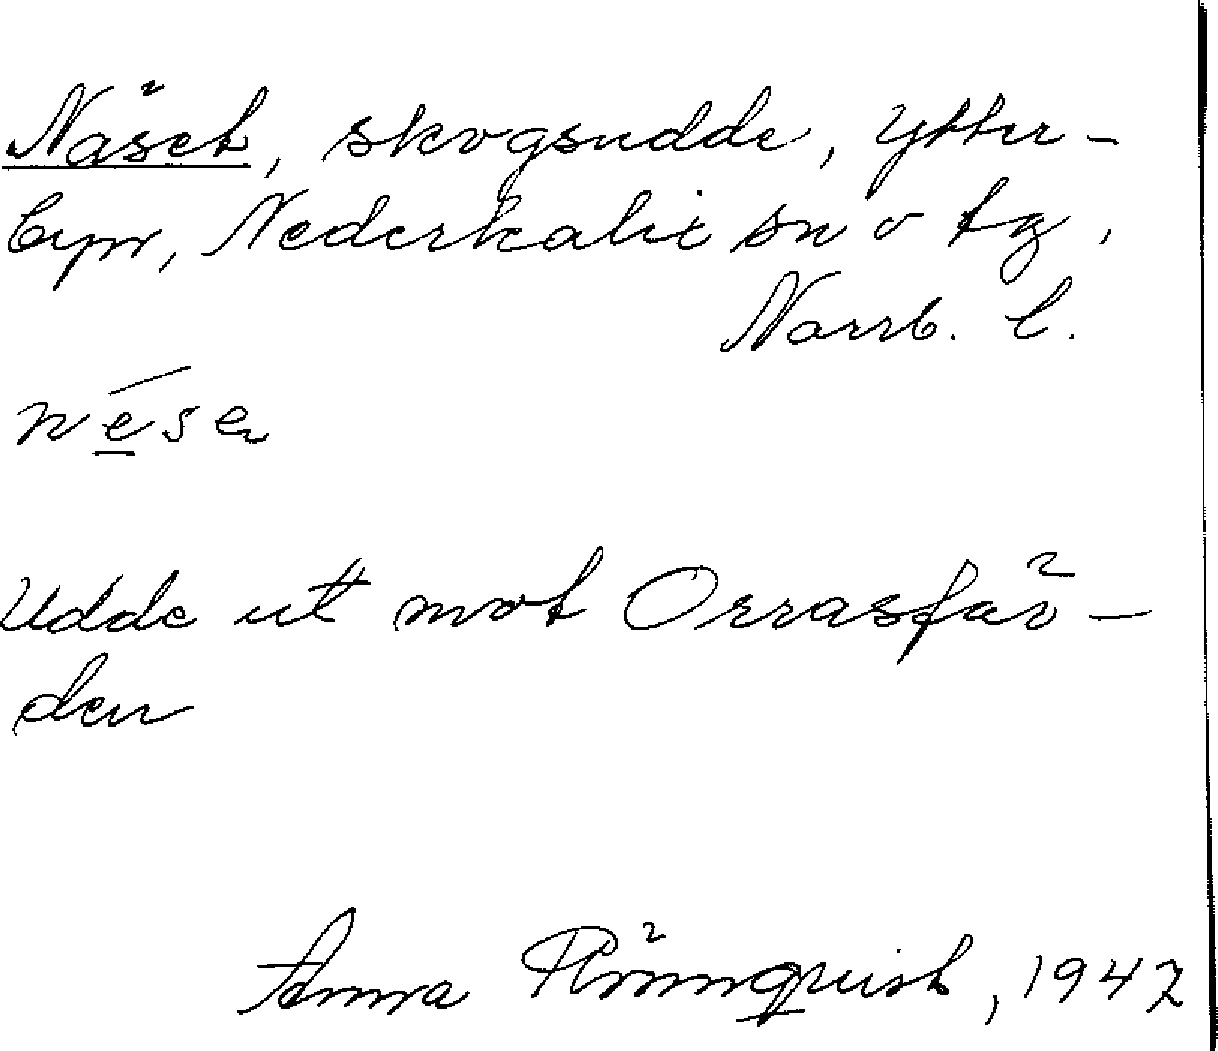 Näset, skogsudde, Ytter-
byn, Nederkalix sn o tg,
Norrb. l.
nése
Udde ut mot Orrasfär-
den
Anna Rönnqvist, 1947